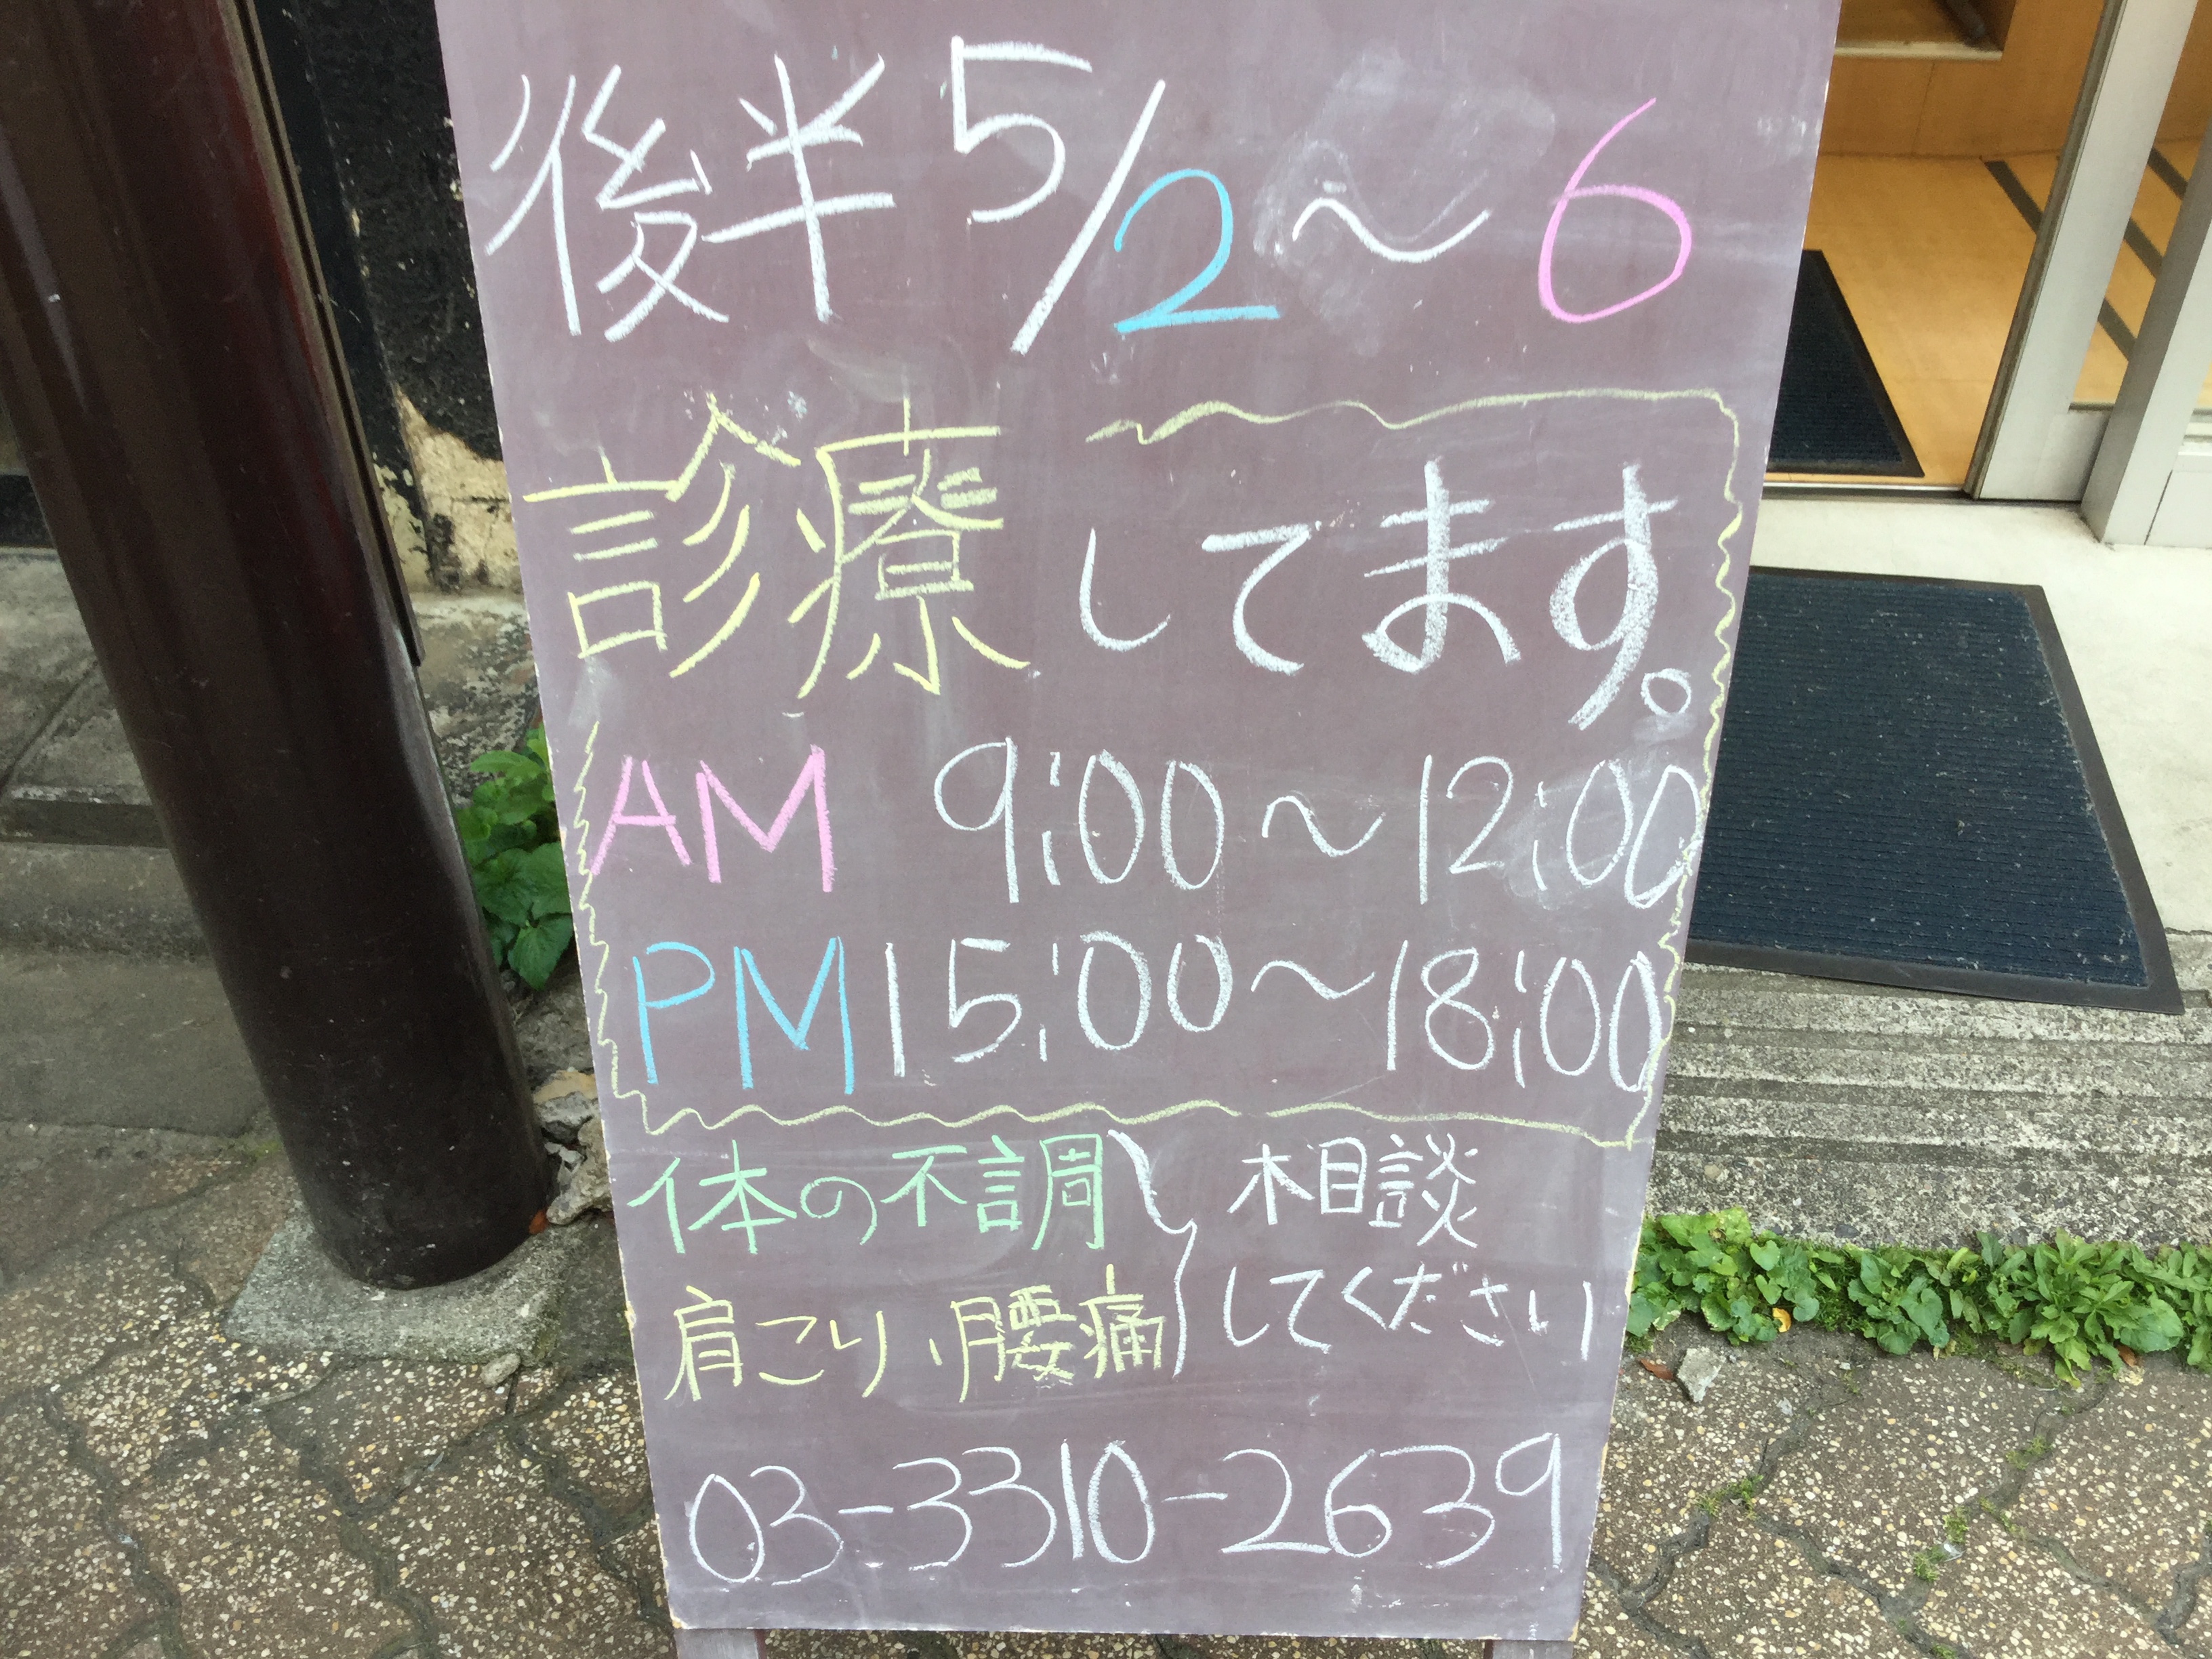 後半5/2～6
診療してます。
AM 9:00～12:00
PM 15:00～18:00
体の不調
肩こり、腰痛
相談
してください
03-3310-2639